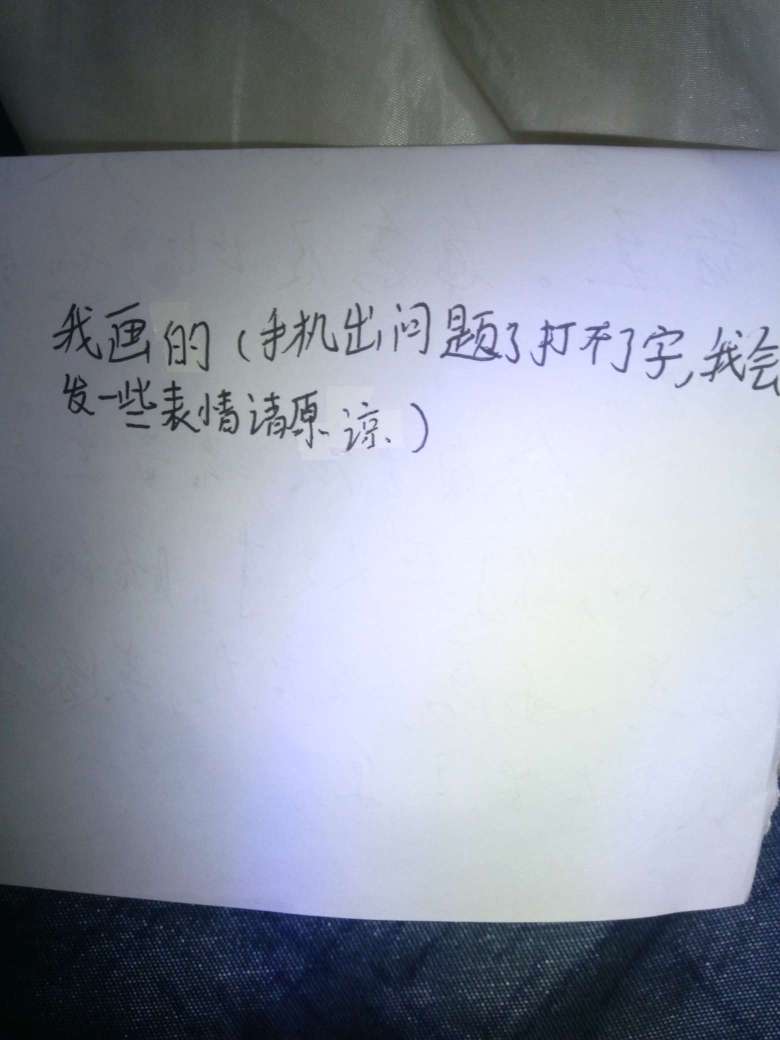 我画的（手机出问题了打不了字,我会
发一些表情请原谅.）